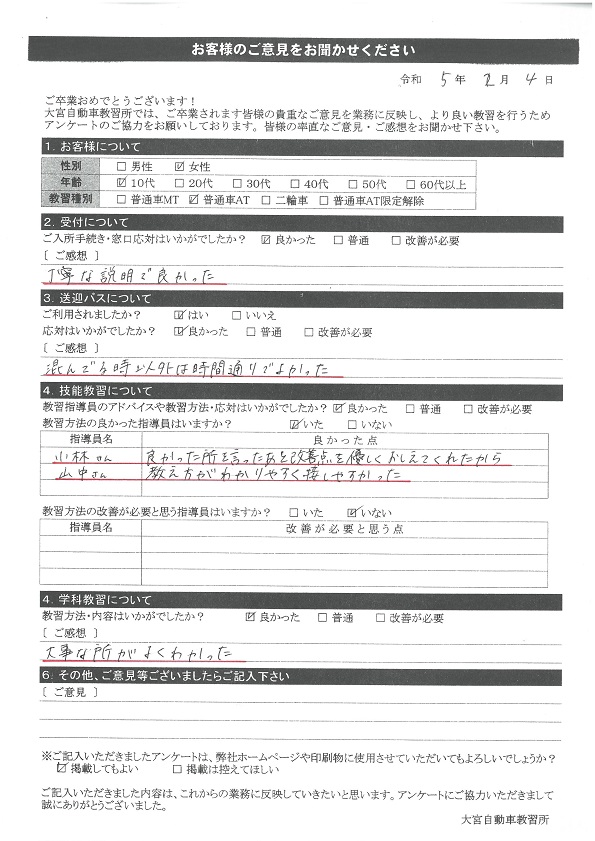 お客様のご意見をお聞かせください
令和 5年 2月 4日
ご卒業おめでとうございます！
大宮自動車教習所では、ご卒業されます皆様の貴重なご意見を業務に反映し、より良い教習を行うため
アンケートのご協力をお願いしております。皆様の率直なご意見・ご感想をお聞かせ下さい。
1. お客様について
性別 □ 男性 ☑ 女性
年齢 ☑ 10代 □ 20代 □ 30代 □ 40代 □ 50代 □ 60代以上
教習種別 □ 普通車MT ☑ 普通車AT □ 二輪車 □ 普通車AT限定解除
2. 受付について
ご入所手続き・窓口応対はいかがでしたか？ ☑ 良かった □ 普通 □ 改善が必要
［ ご感想 ］
丁寧な説明で良かった
3. 送迎バスについて
ご利用されましたか？ ☑ はい □ いいえ
応対はいかがでしたか？ ☑ 良かった □ 普通 □ 改善が必要
［ ご感想 ］
混んでる時以外は時間通りでよかった
4. 技能教習について
教習指導員のアドバイスや教習方法・応対はいかがでしたか？ ☑ 良かった □ 普通 □ 改善が必要
教習方法の良かった指導員はいますか？ ☑ いた □ いない
指導員名 良かった点
小林さん 良かった所を言ったあと改善点を優しくおしえてくれたから
山中さん 教え方がわかりやすく接しやすかった
教習方法の改善が必要と思う指導員はいますか？ □ いた ☑ いない
指導員名 改善が必要と思う点
4. 学科教習について
教習方法・内容はいかがでしたか？ ☑ 良かった □ 普通 □ 改善が必要
［ ご感想 ］
大事な所がよくわかった
6. その他、ご意見等ございましたらご記入下さい
［ ご意見 ］
※ご記入いただきましたアンケートは、弊社ホームページや印刷物に使用させていただいてもよろしいでしょうか？
☑ 掲載してもよい □ 掲載は控えてほしい
ご記入いただきました内容は、これからの業務に反映していきたいと思います。アンケートにご協力いただきまして
誠にありがとうございました。
大宮自動車教習所